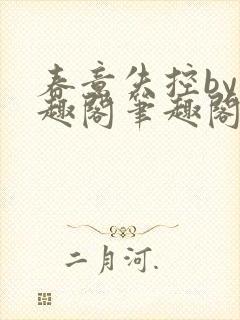 春意失控by
趣阁笔趣阁
二月河.